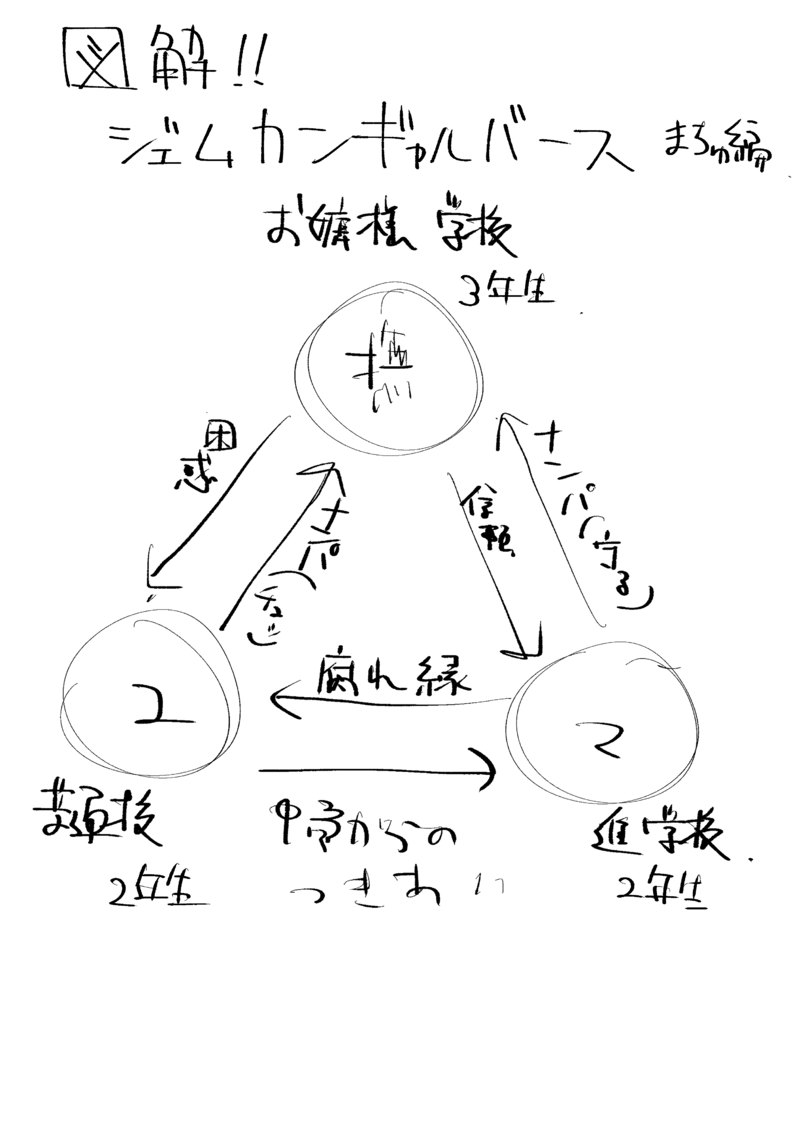 図解!!
ジェムカンギャルバース まちゅ編
お嬢様学校
3年生
塩
困惑
ナンパ
信頼
ナンパ(守る)
腐れ縁
ユ
マ
普通校
2年生
中高からの
つきあい
進学校
2年生